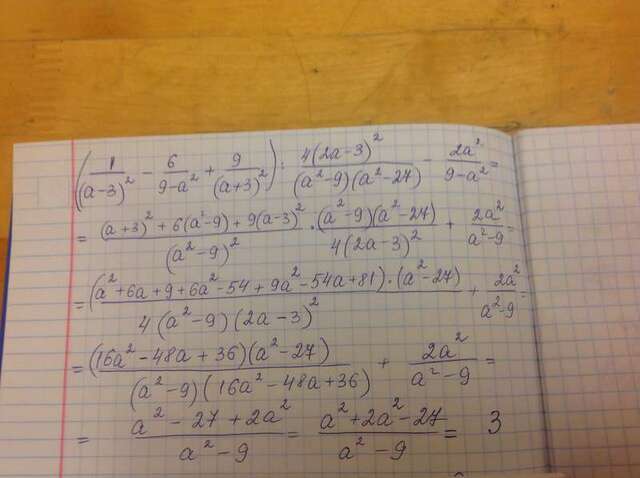 (1/(a-3)² - 6/(9-a²) + 9/(a+3)²) : 4(2a-3)²/((a²-9)(a²-27)) - 2a²/(9-a²) =
= ((a+3)² + 6(a²-9) + 9(a-3)²)/(a²-9)² · (a²-9)(a²-27)/(4(2a-3)²) + 2a²/(a²-9) =
= (a² + 6a + 9 + 6a² - 54 + 9a² - 54a + 81) · (a²-27)/(4(a²-9)(2a-3)²) + 2a²/(a²-9) =
= (16a² - 48a + 36)(a²-27)/((a²-9)(16a² - 48a + 36)) + 2a²/(a²-9) =
= (a² - 27 + 2a²)/(a²-9) = (a² + 2a² - 27)/(a²-9) = 3